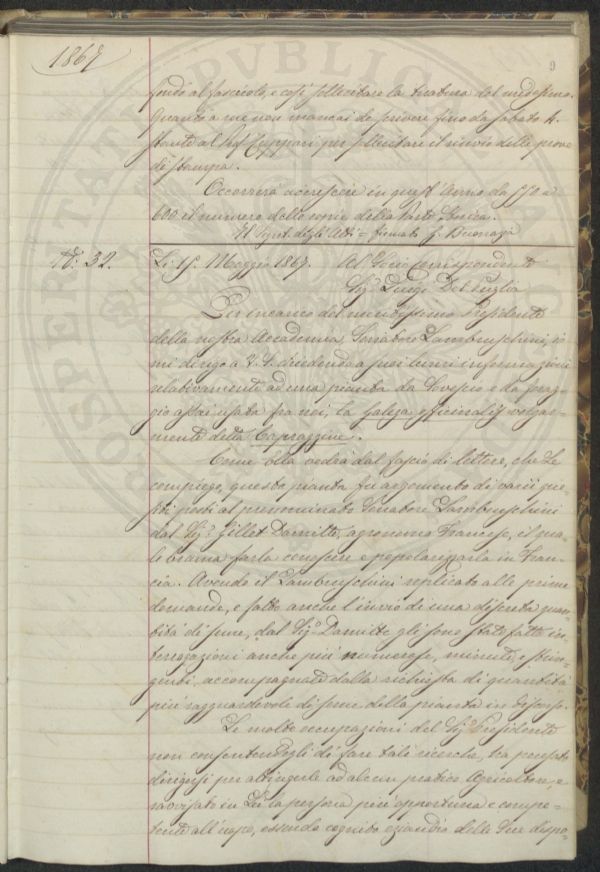 1867
9
fondo al fascicolo, e così sollecitare la tiratura del medesimo.
Quando a me non mancai de scrivere fino da sabato 4.
stante al Sig. Cuppari per sollecitare il rinvio delle prove
di stampa.
Occorrerà accrescere in quest'Anno da 550 a
600 il numero delle copie della Parte Storica.
Il Segret. degli Atti = firmato F. Buonazia
N.: 32. Li 15. Maggio 1867. Al Socio Corrispondente
Sig. Luigi Del Puglia
Per incarico del meritissimo Presidente
della nostra Accademia, Senatore Lambruschini, io
mi dirigo a V. S. chiedendo a suoi lumi informazioni
relativamente ad una pianta da sovescio e da forag-
gio assai usata fra noi, la Galega officinalis volgar-
mente detta Capraggine.
Come Ella vedrà dal fascio di lettere, che Le
compiego, questa pianta fu argomento di varii que-
siti posti al prenominato Senatore Lambruschini
dal Sig. Gillet Damitte, agronomo Francese, il qua-
le brama farla conoscere e popolarizzarla in Fran-
cia. Avendo il Lambruschini replicato alle prime
domande, e fatto anche l'invio di una discreta quan-
tità di seme, dal Sig. Damitte gli sono state fatte in-
terrogazioni anche più numerose, minute, e strin-
genti, accompagnate dalla richiesta di quantità
più ragguardevole di seme della pianta in discorso.
Le molte occupazioni del Sig. Presidente
non consentendogli di fare tali ricerche, ha pensato
dirigersi per attingerle ad alcun pratico Agricoltore, e
ravvisato in Lei la persona più opportuna e compe-
tente all'uopo, essendo cognito eziandio delle Sue dispo-